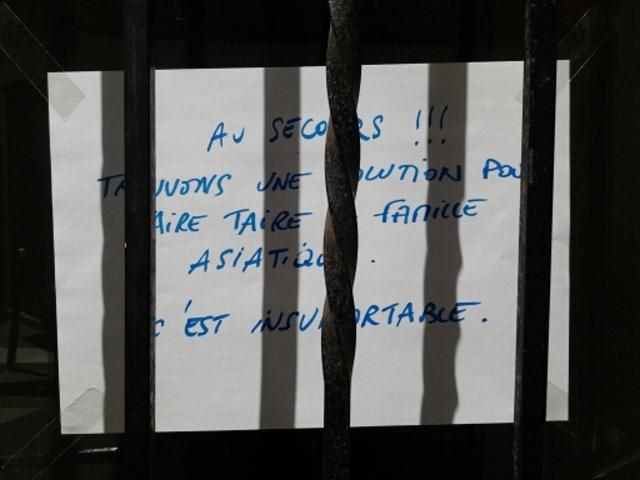 AU SECOURS !!!
TROUVONS UNE SOLUTION POUR
FAIRE TAIRE FAMILLE
ASIATIQUE.
C'EST INSUPPORTABLE.